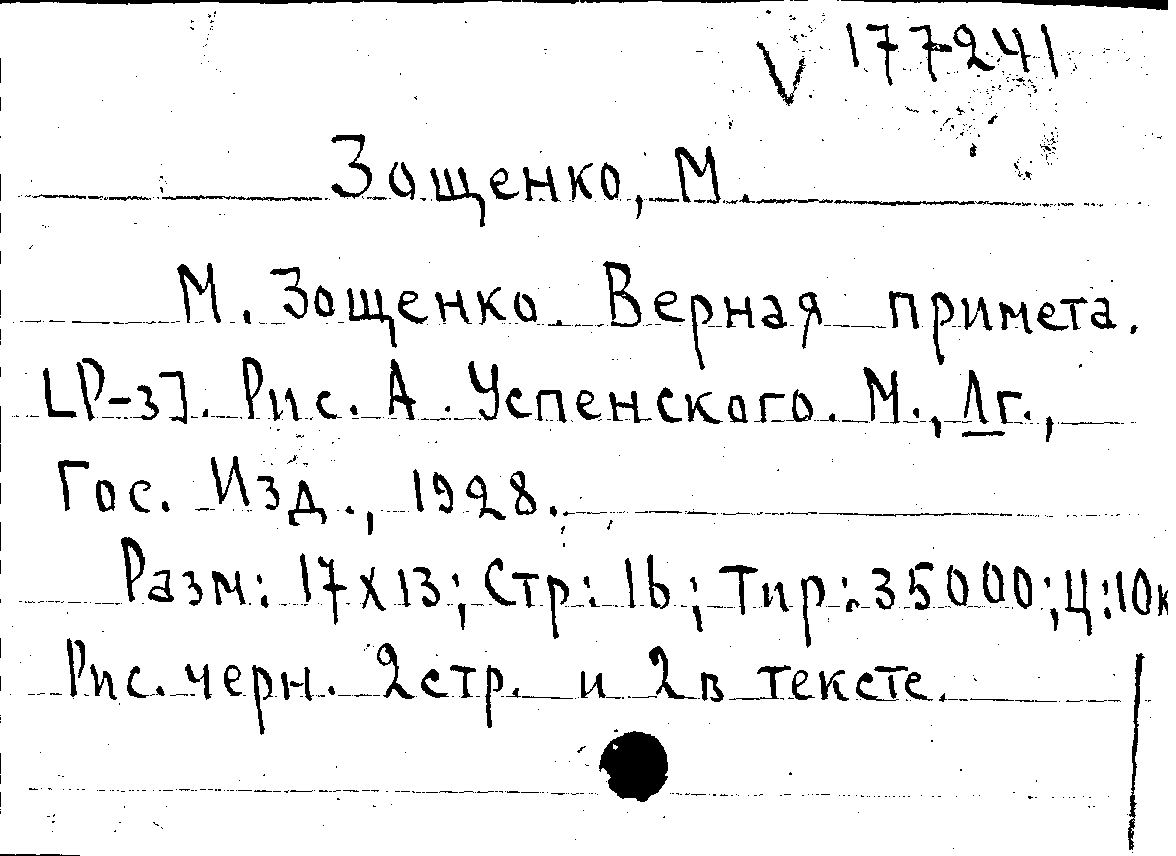 V 177241
Зощенко, М.
М. Зощенко. Верная примета.
[Р-з]. Рис. А. Успенского. М., Лг.,
Гос. Изд., 1928.
Разм: 17х13; Стр: 16; Тир: 35000; Ц: 10к
Рис. черн. 2 стр. и 2 в тексте.